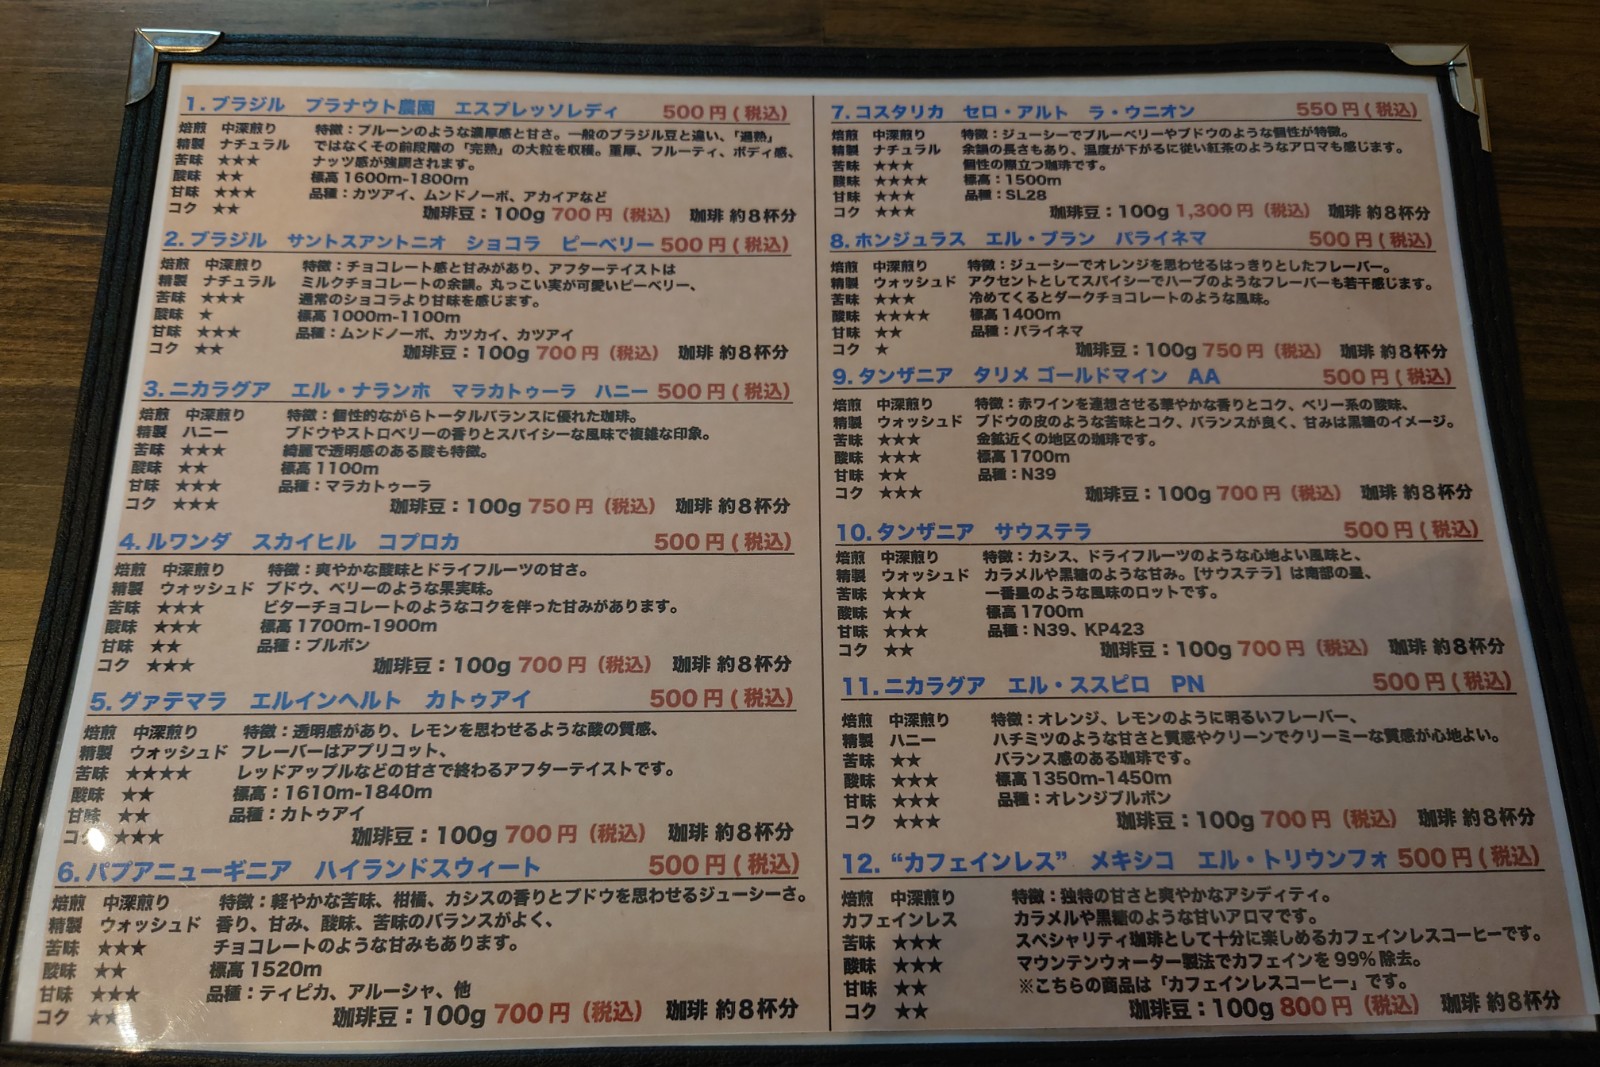 1. ブラジル　プラナウト農園　エスプレッソレディ　500円(税込)
焙煎　中深煎り　特徴：プルーンのような濃厚感と甘さ。一般のブラジル豆と違い、「過熟」
精製　ナチュラル　ではなくその前段階の「完熟」の大粒を収穫。重厚、フルーティ、ボディ感、
苦味　★★★　ナッツ感が強調されます。
酸味　★★　標高1600m-1800m
甘味　★★★　品種：カツアイ、ムンドノーボ、アカイアなど
コク　★★　珈琲豆：100g 700円（税込）　珈琲 約8杯分
2. ブラジル　サントスアントニオ　ショコラ　ピーベリー 500円(税込)
焙煎　中深煎り　特徴：チョコレート感と甘みがあり、アフターテイストは
精製　ナチュラル　ミルクチョコレートの余韻。丸っこい実が可愛いピーベリー、
苦味　★★★　通常のショコラより甘味を感じます。
酸味　★　標高1000m-1100m
甘味　★★★　品種：ムンドノーボ、カツカイ、カツアイ
コク　★★　珈琲豆：100g 700円（税込）　珈琲 約8杯分
3. ニカラグア　エル・ナランホ　マラカトゥーラ　ハニー 500円(税込)
焙煎　中深煎り　特徴：個性的ながらトータルバランスに優れた珈琲。
精製　ハニー　ブドウやストロベリーの香りとスパイシーな風味で複雑な印象。
苦味　★★★　綺麗で透明感のある酸も特徴。
酸味　★★　標高1100m
甘味　★★★　品種：マラカトゥーラ
コク　★★★　珈琲豆：100g 750円（税込）　珈琲 約8杯分
4. ルワンダ　スカイヒル　コプロカ　500円(税込)
焙煎　中深煎り　特徴：爽やかな酸味とドライフルーツの甘さ。
精製　ウォッシュド　ブドウ、ベリーのような果実味。
苦味　★★★　ビターチョコレートのようなコクを伴った甘みがあります。
酸味　★★★　標高1700m-1900m
甘味　★★　品種：ブルボン
コク　★★★　珈琲豆：100g 700円（税込）　珈琲 約8杯分
5. グァテマラ　エルインヘルト　カトゥアイ　500円(税込)
焙煎　中深煎り　特徴：透明感があり、レモンを思わせるような酸の質感、
精製　ウォッシュド　フレーバーはアプリコット、
苦味　★★★★　レッドアップルなどの甘さで終わるアフターテイストです。
酸味　★★　標高：1610m-1840m
甘味　★★　品種：カトゥアイ
コク　★★★　珈琲豆：100g 700円（税込）　珈琲 約8杯分
6. パプアニューギニア　ハイランドスウィート　500円(税込)
焙煎　中深煎り　特徴：軽やかな苦味、柑橘、カシスの香りとブドウを思わせるジューシーさ。
精製　ウォッシュド　香り、甘み、酸味、苦味のバランスがよく、
苦味　★★★　チョコレートのような甘みもあります。
酸味　★★　標高1520m
甘味　★★★　品種：ティピカ、アルーシャ、他
コク　★★　珈琲豆：100g 700円（税込）　珈琲 約8杯分
7. コスタリカ　セロ・アルト　ラ・ウニオン　550円(税込)
焙煎　中深煎り　特徴：ジューシーでブルーベリーやブドウのような個性が特徴。
精製　ナチュラル　余韻の長さもあり、温度が下がるに従い紅茶のようなアロマも感じます。
苦味　★★★　個性の際立つ珈琲です。
酸味　★★★★　標高：1500m
甘味　★★★　品種：SL28
コク　★★★　珈琲豆：100g 1,300円（税込）　珈琲 約8杯分
8. ホンジュラス　エル・ブラン　パライネマ　500円(税込)
焙煎　中深煎り　特徴：ジューシーでオレンジを思わせるはっきりとしたフレーバー。
精製　ウォッシュド　アクセントとしてスパイシーでハーブのようなフレーバーも若干感じます。
苦味　★★★　冷めてくるとダークチョコレートのような風味。
酸味　★★★★　標高1400m
甘味　★★　品種：パライネマ
コク　★　珈琲豆：100g 750円（税込）　珈琲 約8杯分
9. タンザニア　タリメ ゴールドマイン　AA　500円(税込)
焙煎　中深煎り　特徴：赤ワインを連想させる華やかな香りとコク、ベリー系の酸味、
精製　ウォッシュド　ブドウの皮のような苦味とコク、バランスが良く、甘みは黒糖のイメージ。
苦味　★★★　金鉱近くの地区の珈琲です。
酸味　★★★　標高1700m
甘味　★★　品種：N39
コク　★★★　珈琲豆：100g 700円（税込）　珈琲 約8杯分
10. タンザニア　サウステラ　500円(税込)
焙煎　中深煎り　特徴：カシス、ドライフルーツのような心地よい風味と、
精製　ウォッシュド　カラメルや黒糖のような甘み。【サウステラ】は南部の星、
苦味　★★★　一番星のような風味のロットです。
酸味　★★　標高1700m
甘味　★★★　品種：N39、KP423
コク　★★　珈琲豆：100g 700円（税込）　珈琲 約8杯分
11. ニカラグア　エル・ススピロ　PN　500円(税込)
焙煎　中深煎り　特徴：オレンジ、レモンのように明るいフレーバー、
精製　ハニー　ハチミツのような甘さと質感やクリーンでクリーミーな質感が心地よい。
苦味　★★　バランス感のある珈琲です。
酸味　★★★　標高1350m-1450m
甘味　★★★　品種：オレンジブルボン
コク　★★★　珈琲豆：100g 700円（税込）　珈琲 約8杯分
12. “カフェインレス”　メキシコ　エル・トリウンフォ 500円(税込)
焙煎　中深煎り　特徴：独特の甘さと爽やかなアシディティ。
カフェインレス　カラメルや黒糖のような甘いアロマです。
苦味　★★★　スペシャリティ珈琲として十分に楽しめるカフェインレスコーヒーです。
酸味　★★★　マウンテンウォーター製法でカフェインを99%除去。
甘味　★★　※こちらの商品は「カフェインレスコーヒー」です。
コク　★★　珈琲豆：100g 800円（税込）　珈琲 約8杯分